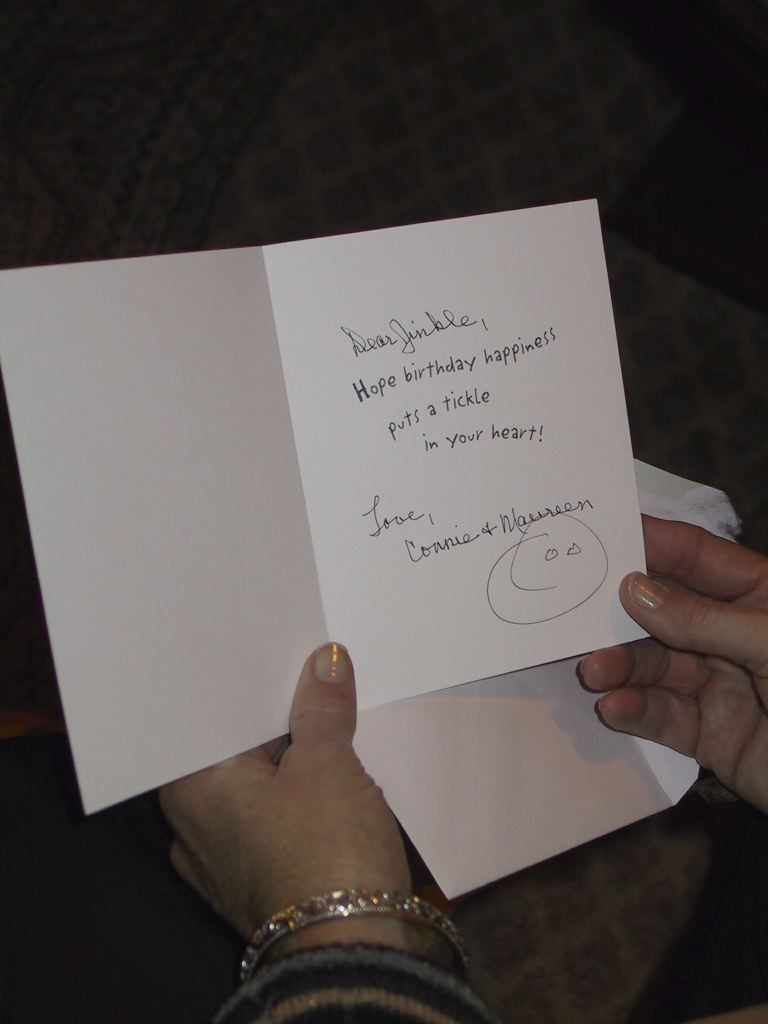 Dear Jinkle,
Hope birthday happiness
puts a tickle
in your heart!
Love,
Connie & Maureen